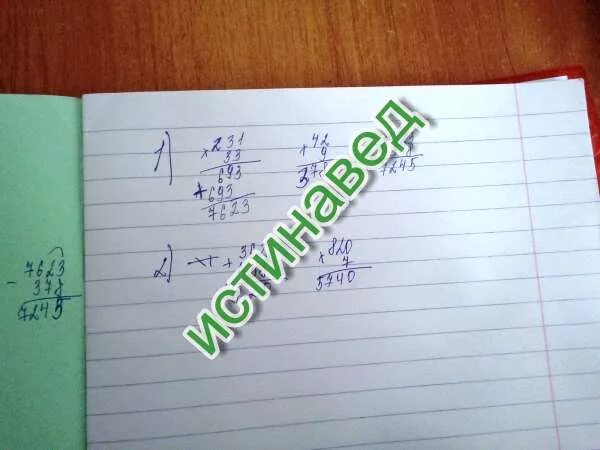 1)
× 231
33
693
+ 693
7623
× 42
9
378
7245
2)
× 820
7
5740
- 7623
378
7245
ИСТИНАВЕД